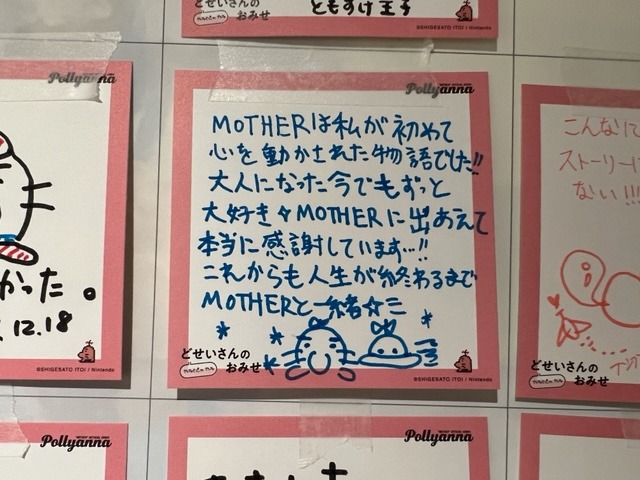 どせいさんの
おみせ
ともすけ王子
©SHIGESATO ITOI / Nintendo
Pollyanna
かった。
12.18
©SHIGESATO ITOI / Nintendo
Pollyanna
MOTHERは私が初めて
心を動かされた物語でした!!
大人になった今でもずっと
大好き☆MOTHERに出あえて
本当に感謝しています…!!
これからも人生が終わるまで
MOTHERと一緒☆ミ
どせいさんの
おみせ
©SHIGESATO ITOI / Nintendo
こんなに
ストーリーは
ない!!!
どせいさんの
おみせ
Pollyanna
Pollyanna